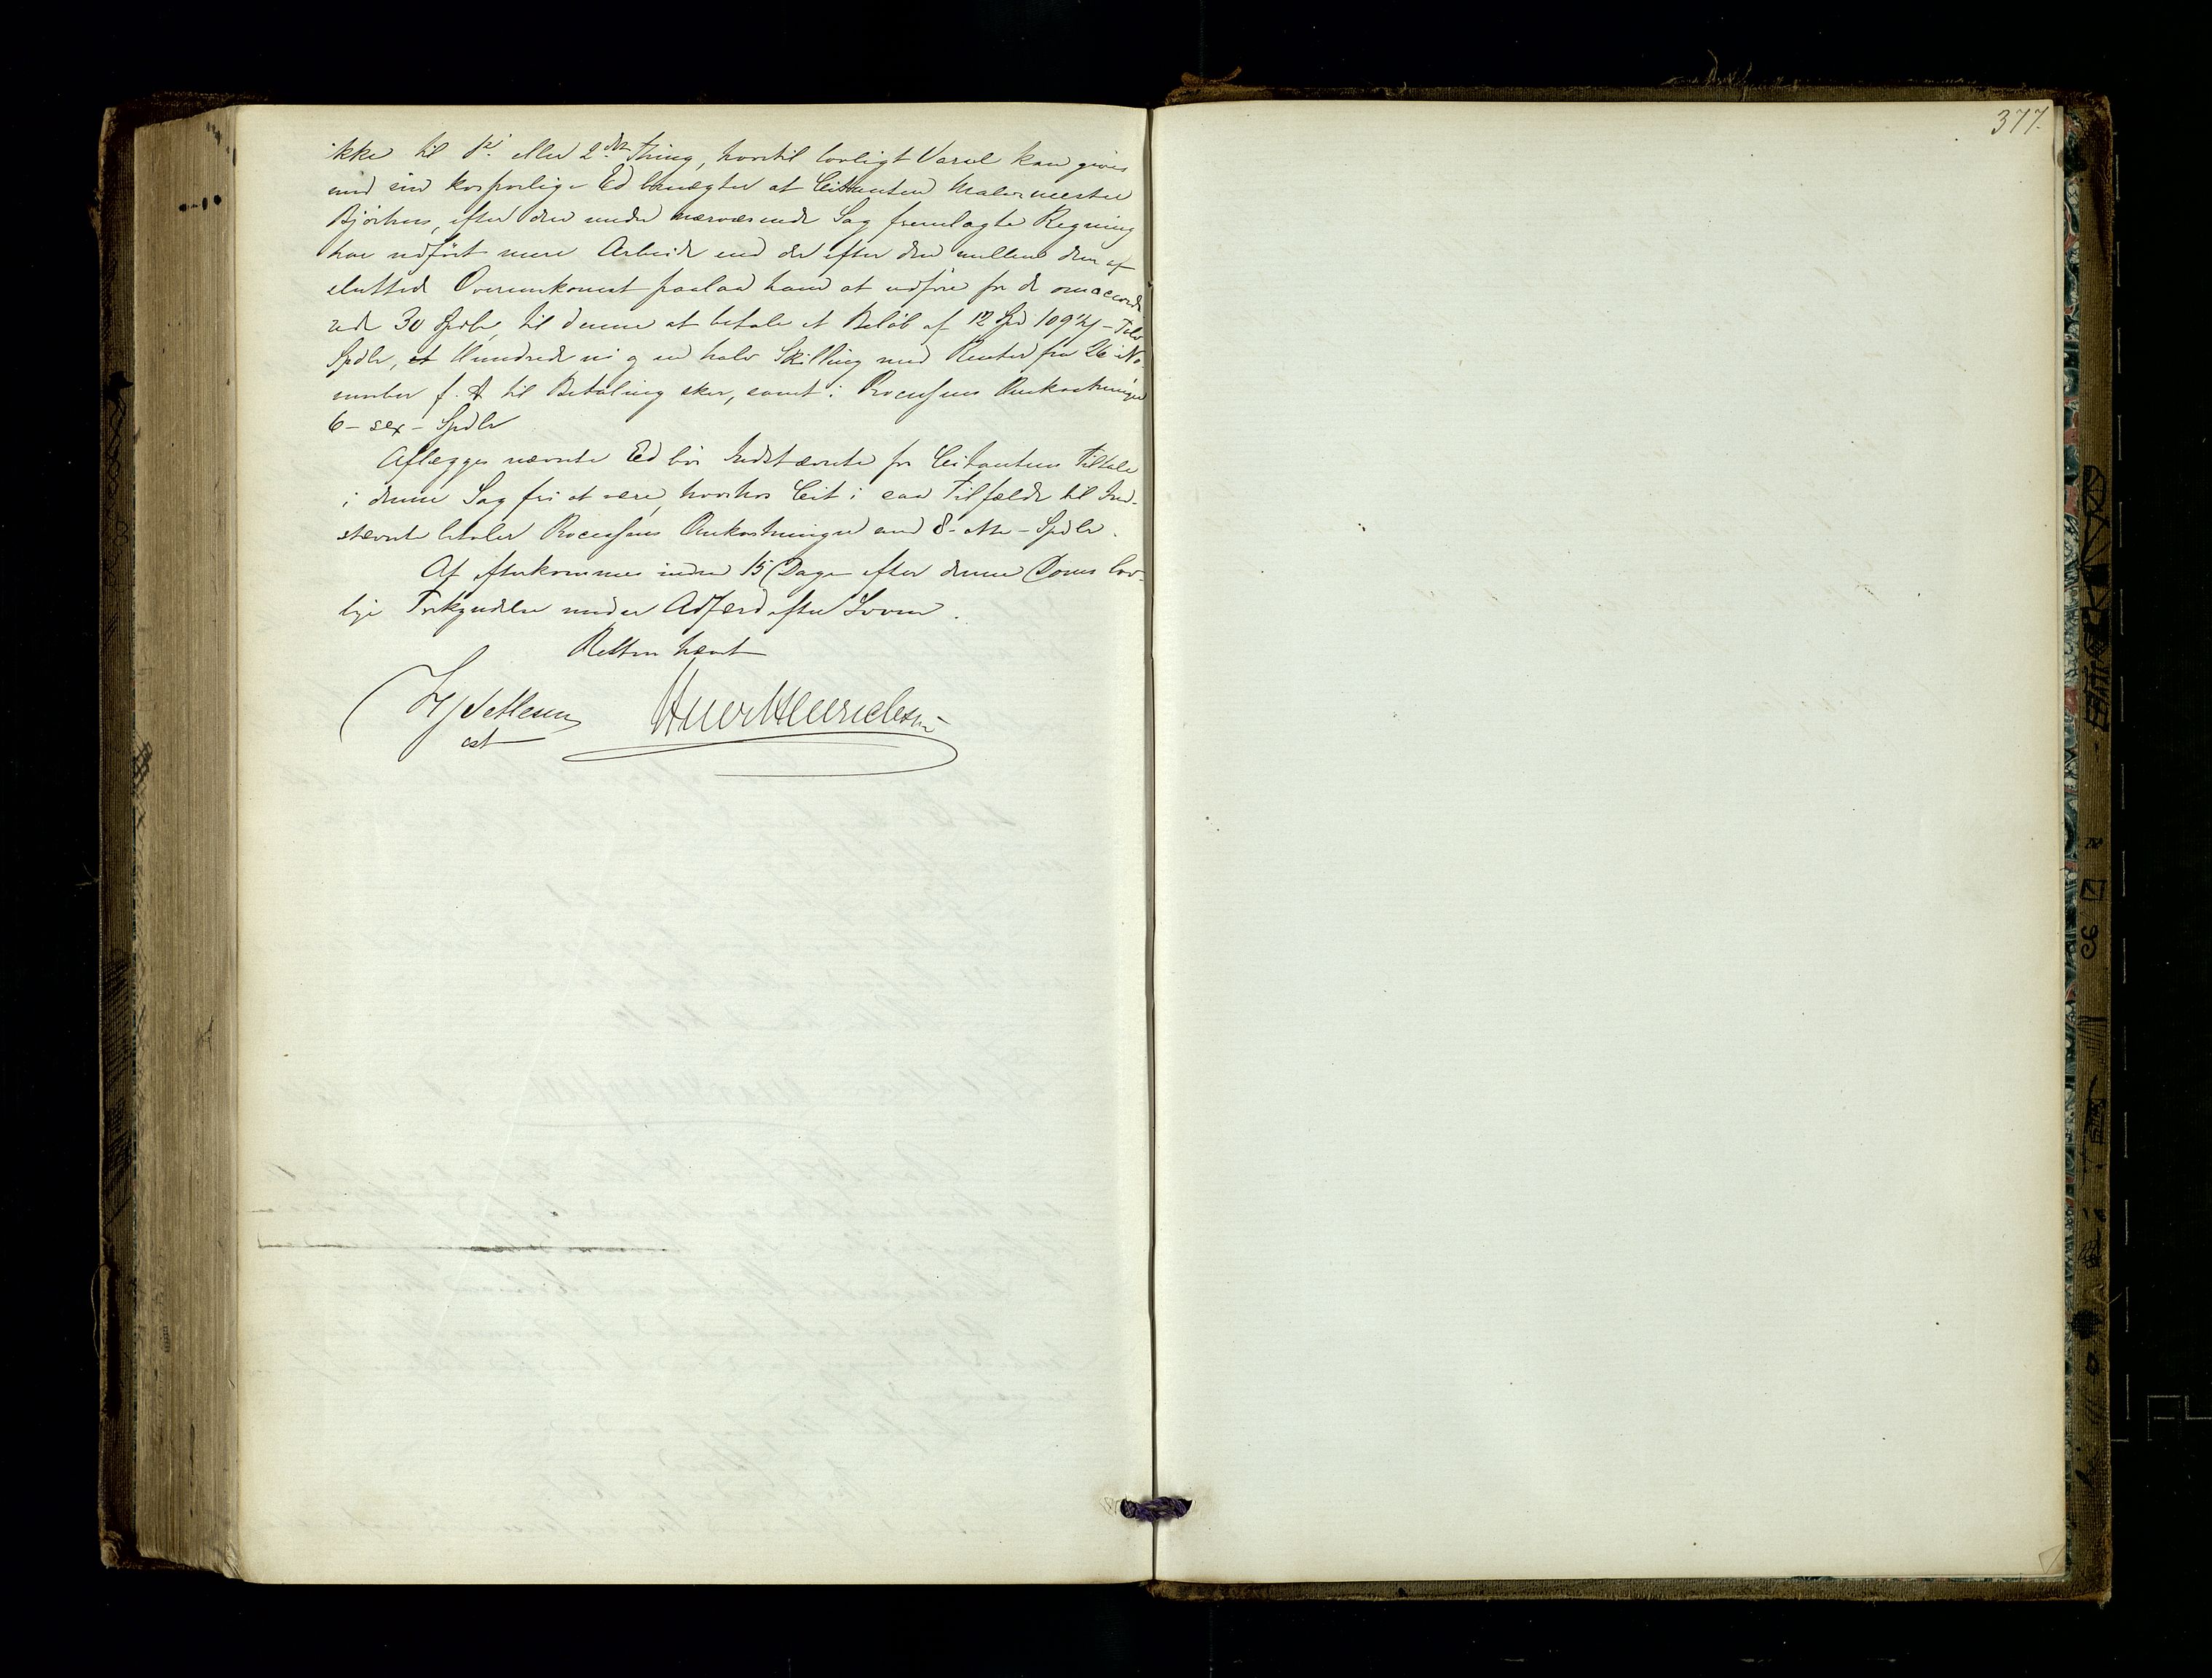 ikke til 1ste eller 2det Thing, hvortil lovligt Varsel kan gives
med sin korporlige Ed benægter at Citanten Malermester
Björhus, efter den under nærværende Sag fremlagte Regning
har udført mere Arbeide end der efter den mellem dem af-
sluttede Overenskomst paalaa ham at udføre for de omaccorde
rede 30 Spdlr, til denne at betale et Beløb af 12 Spd 109½ - Tolv
Spdlr, et Hundrede ni og en halv Skilling med Renter fra 26 No-
vember f. A til Betaling sker, samt i Processens Omkostninger
6 - sex - Spdlr
Aflægges nævnte Ed bør Indstævnte for Citantens Tiltale
i denne Sag fri at være, hvorhos Cit i saa Tilfælde til Ind-
stævnte betaler Processens Omkostninger med 8 - otte - Spdlr.
At efterkommes inden 15 Dage efter denne Doms lov-
lige Forkyndelse under Adfærd efter Loven.
Retten hævet
377.